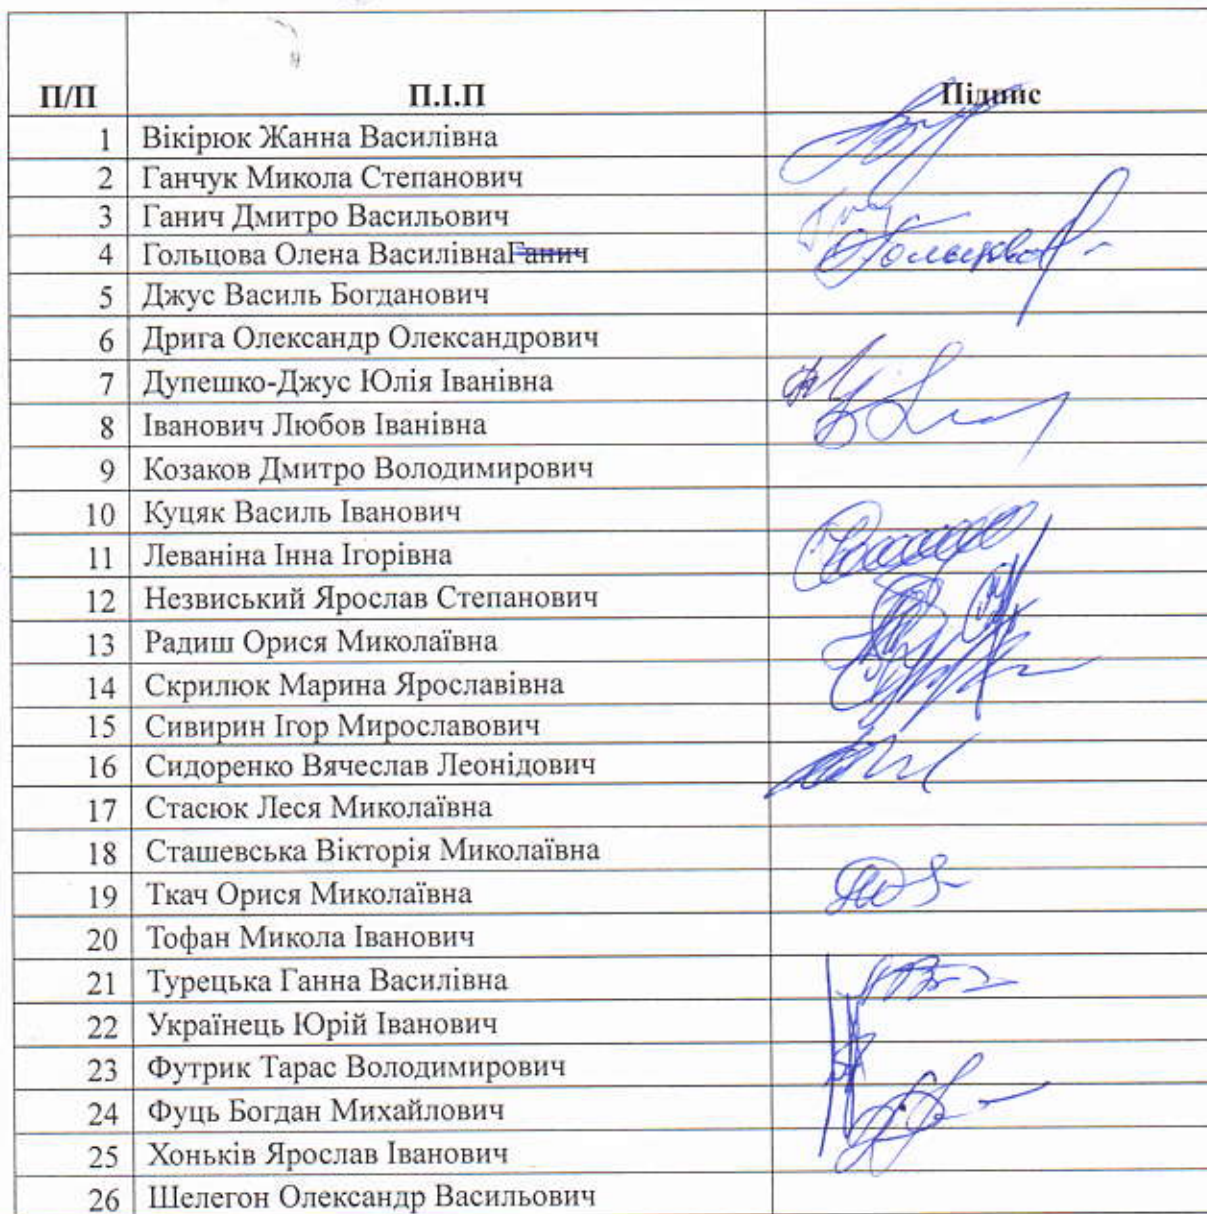 П/П П.І.П Підпис
1 Вікірюк Жанна Василівна
2 Ганчук Микола Степанович
3 Ганич Дмитро Васильович
4 Гольцова Олена ВасилівнаГанич
5 Джус Василь Богданович
6 Дрига Олександр Олександрович
7 Дупешко-Джус Юлія Іванівна
8 Іванович Любов Іванівна
9 Козаков Дмитро Володимирович
10 Куцяк Василь Іванович
11 Леваніна Інна Ігорівна
12 Незвиський Ярослав Степанович
13 Радиш Орися Миколаївна
14 Скрилюк Марина Ярославівна
15 Сивирин Ігор Мирославович
16 Сидоренко Вячеслав Леонідович
17 Стасюк Леся Миколаївна
18 Сташевська Вікторія Миколаївна
19 Ткач Орися Миколаївна
20 Тофан Микола Іванович
21 Турецька Ганна Василівна
22 Українець Юрій Іванович
23 Футрик Тарас Володимирович
24 Фуць Богдан Михайлович
25 Хоньків Ярослав Іванович
26 Шелегон Олександр Васильович